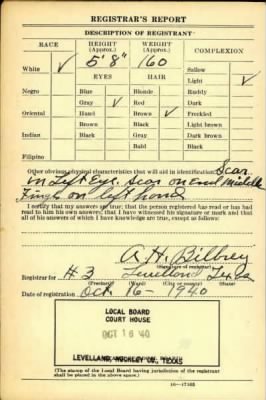 REGISTRAR'S REPORT
DESCRIPTION OF REGISTRANT
RACE HEIGHT (Approx.) WEIGHT (Approx.) COMPLEXION
5' 8" 160
White ✓ EYES HAIR Sallow
Light ✓
Negro Blue Blonde Ruddy
Gray ✓ Red Dark
Oriental Hazel Brown ✓ Freckled
Brown Black Light brown
Indian Black Gray Dark brown
Bald Black
Filipino
Other obvious physical characteristics that will aid in identification Scar
on Left Eye. Scar on End Middle
Finger on left hand
I certify that my answers are true; that the person registered has read or has had
read to him his own answers; that I have witnessed his signature or mark and that
all of his answers of which I have knowledge are true, except as follows:
A. H. Bilbrey
(Signature of registrar)
Registrar for #3 Levelland Texas
(Precinct) (Ward) (City or county) (State)
Date of registration Oct 16 - 1940
LOCAL BOARD
COURT HOUSE
OCT 16 '40
LEVELLAND, HOCKLEY CO., TEXAS
(The stamp of the Local Board having jurisdiction of the registrant
shall be placed in the above space.)